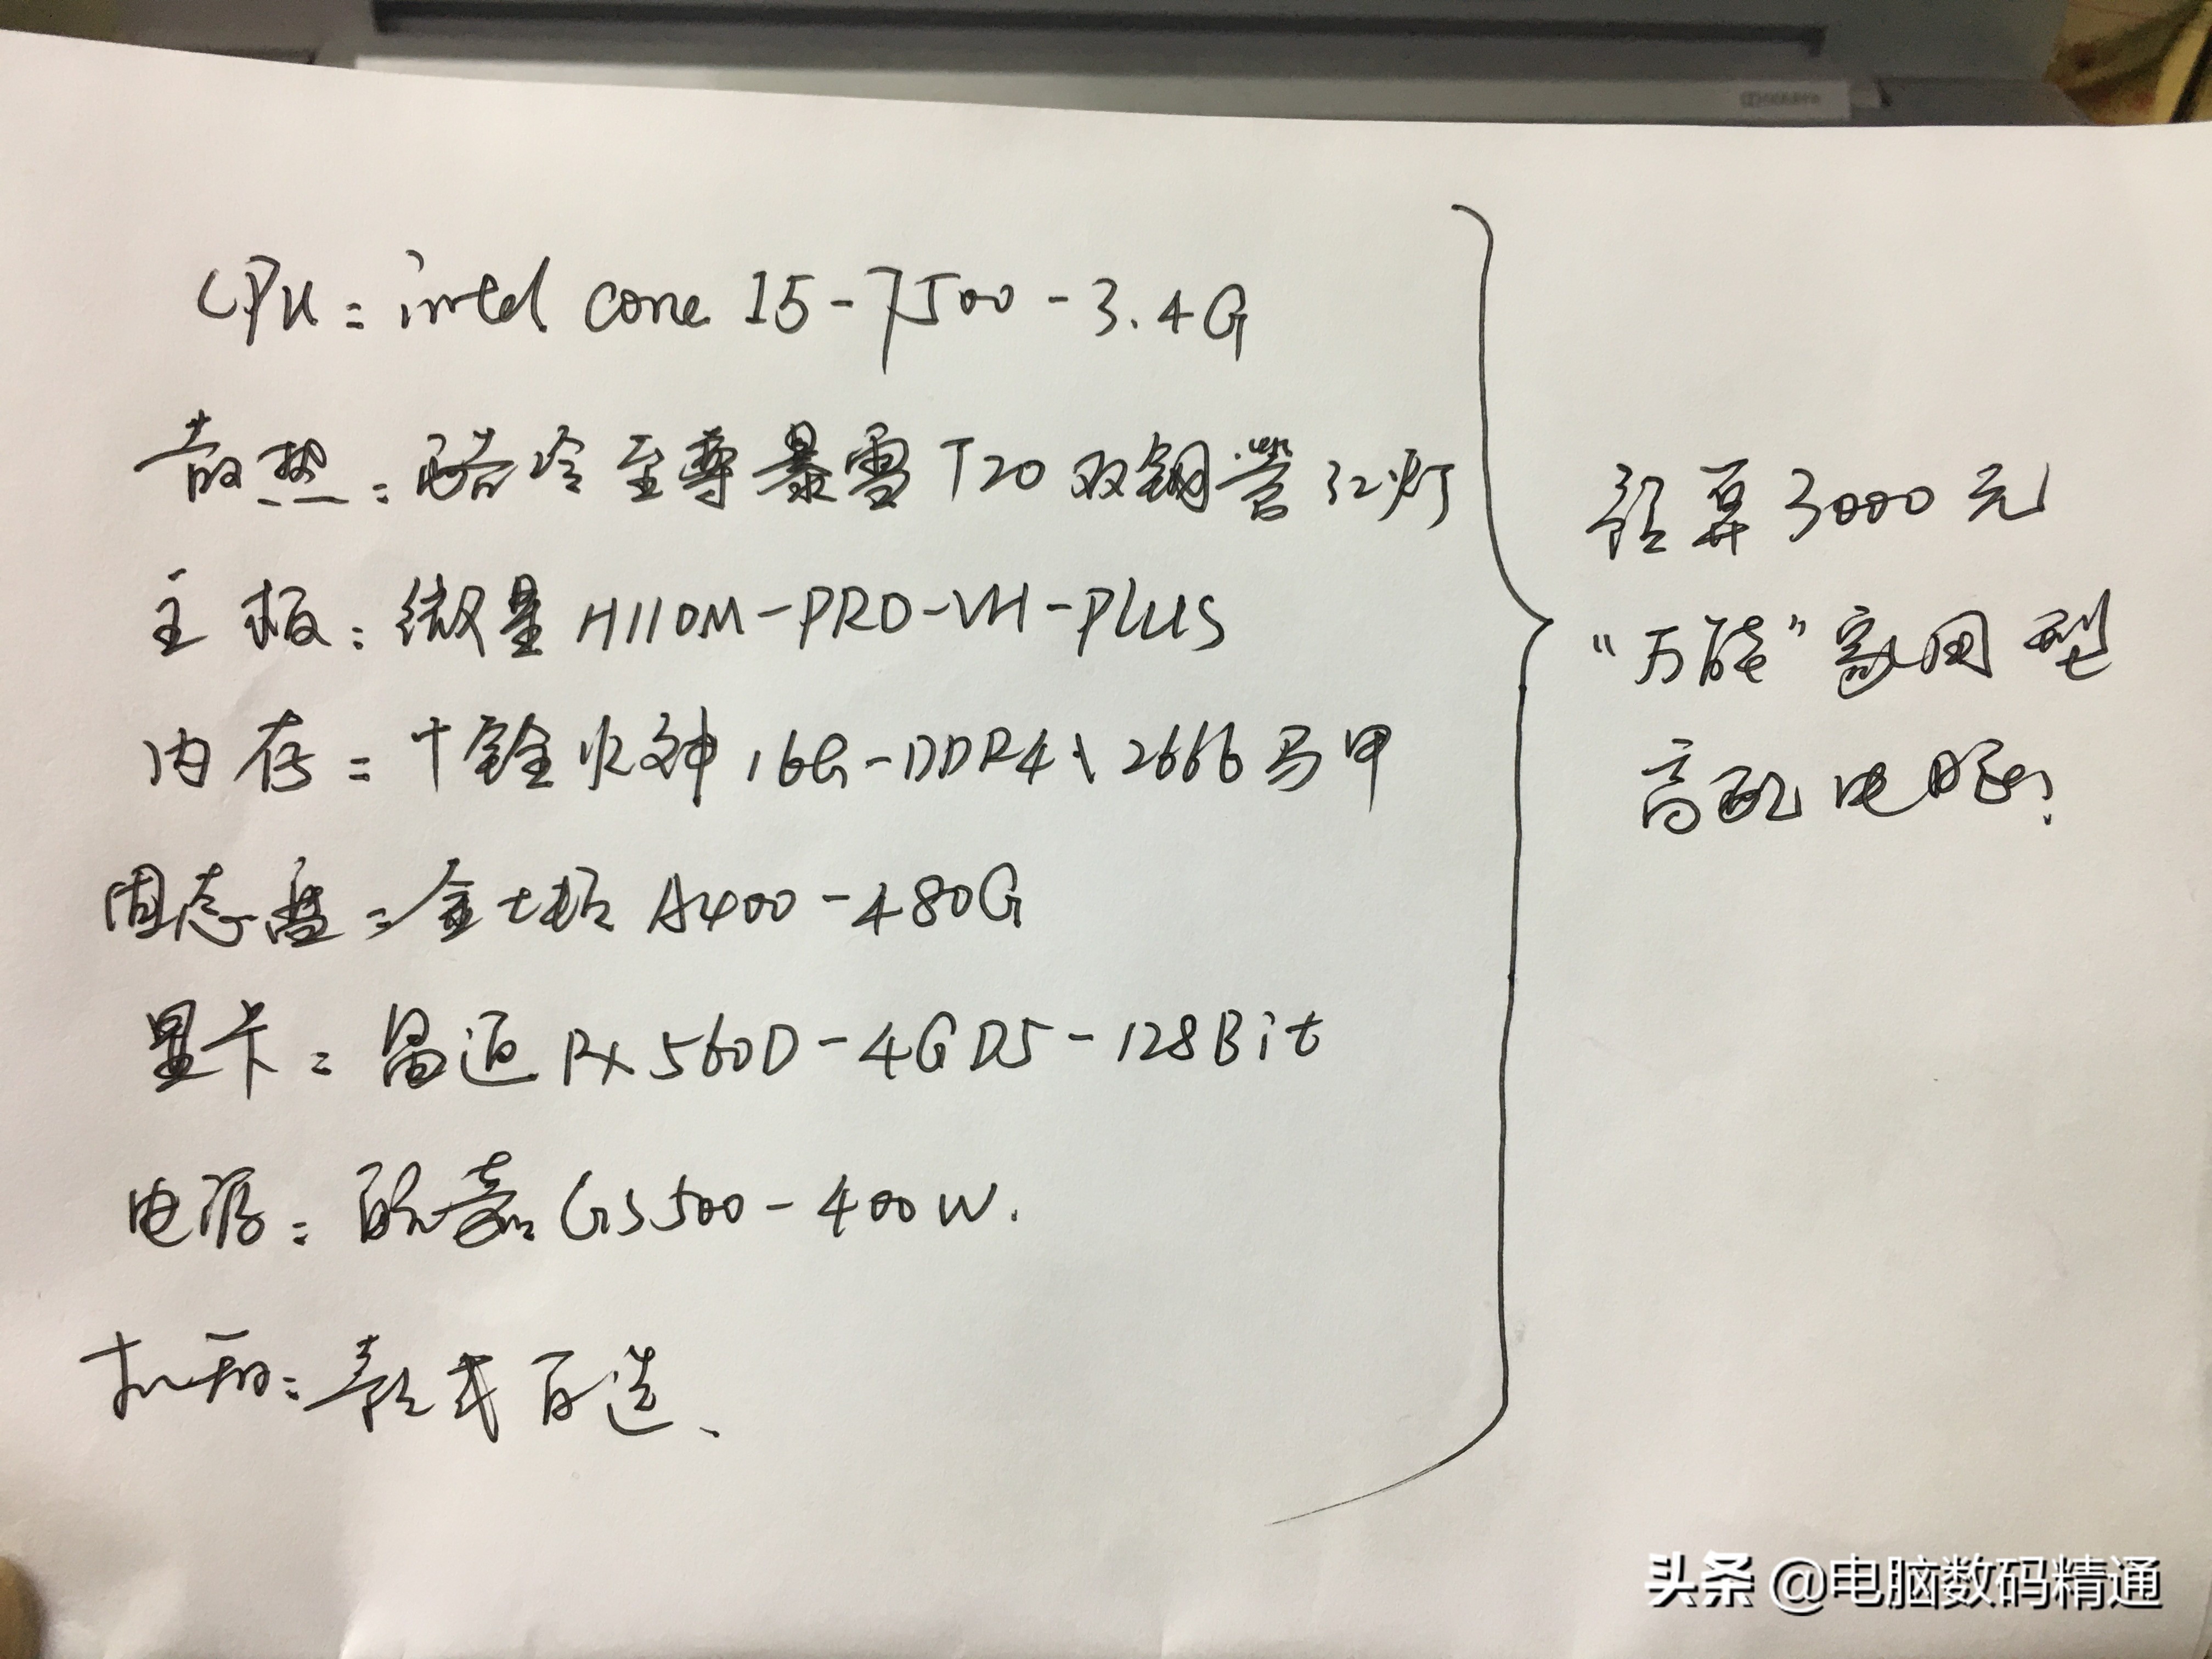 CPU: intel core I5-7500-3.4G
散热: 酷冷至尊暴雪T20双铜管红灯
主板: 微星H110M-PRO-VH-PLUS
内存: 十铨火神16G-DDR4\2666马甲
固态盘: 金士顿A400-480G
显卡: 昌迈RX560D-4GD5-128Bit
电源: 航嘉GS500-400W.
机箱: 款式自选、
预算3000元
"万能"家用型
高配电脑!
头条 @电脑数码精通